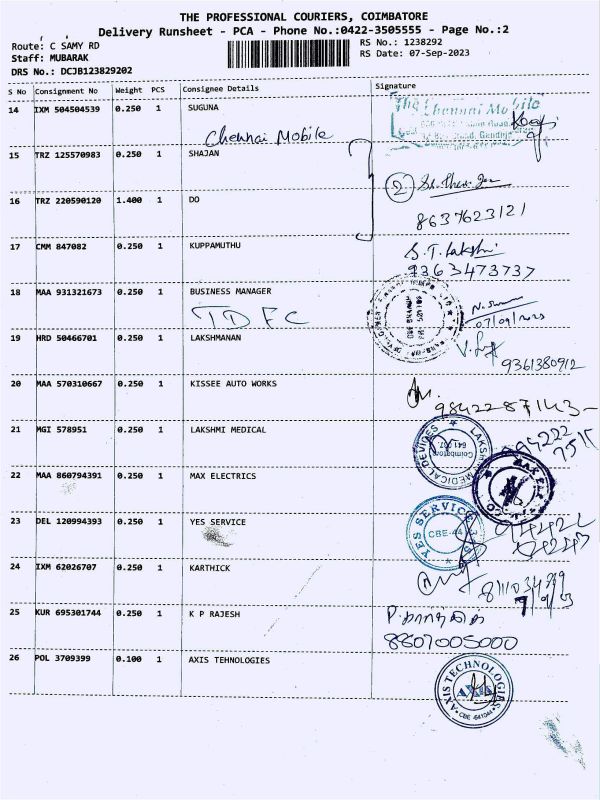 THE PROFESSIONAL COURIERS, COIMBATORE
Delivery Runsheet - PCA - Phone No.:0422-3505555 - Page No.:2
Route: C SAMY RD
RS No.: 1238292
Staff: MUBARAK
RS Date: 07-Sep-2023
DRS No.: DCJB123829202
S No Consignment No Weight PCS Consignee Details Signature
14 IXM 504504539 0.250 1 SUGUNA
The Chennai Mobile
Chennai Mobile
15 TRZ 125570983 0.250 1 SHAJAN
2
16 TRZ 220590120 1.400 1 DO
8637623121
17 CMM 847082 0.250 1 KUPPAMUTHU
S.T. Lakshi
9363473737
18 MAA 931321673 0.250 1 BUSINESS MANAGER
TDFC
07/09/2023
19 HRD 50466701 0.250 1 LAKSHMANAN
9361380912
20 MAA 570310667 0.250 1 KISSEE AUTO WORKS
9842287143
21 MGI 578951 0.250 1 LAKSHMI MEDICAL
LAKSHMI MEDICAL DEVICES
Coimbatore
641 007.
22 MAA 860794391 0.250 1 MAX ELECTRICS
23 DEL 120994393 0.250 1 YES SERVICE
YES SERVICE
CBE-44
24 IXM 62026707 0.250 1 KARTHICK
7/9/23
25 KUR 695301744 0.250 1 K P RAJESH
8807005000
26 POL 3709399 0.100 1 AXIS TEHNOLOGIES
AXIS TECHNOLOGIES
AXIS
CBE -641044